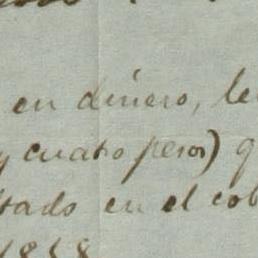 en dinero, le
y cuatro pesos) q
tado en el cob
1858